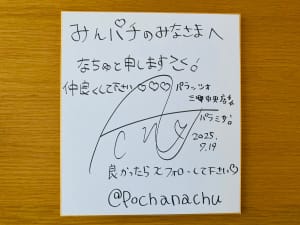 みんパチのみなさまへ
なちゅと申します
仲良くして下さい♡♡♡
パラッツオ
三郷中央店
パラミタ!
2025.
7.19
良かったらXフォローして下さい♡
@pochanachu